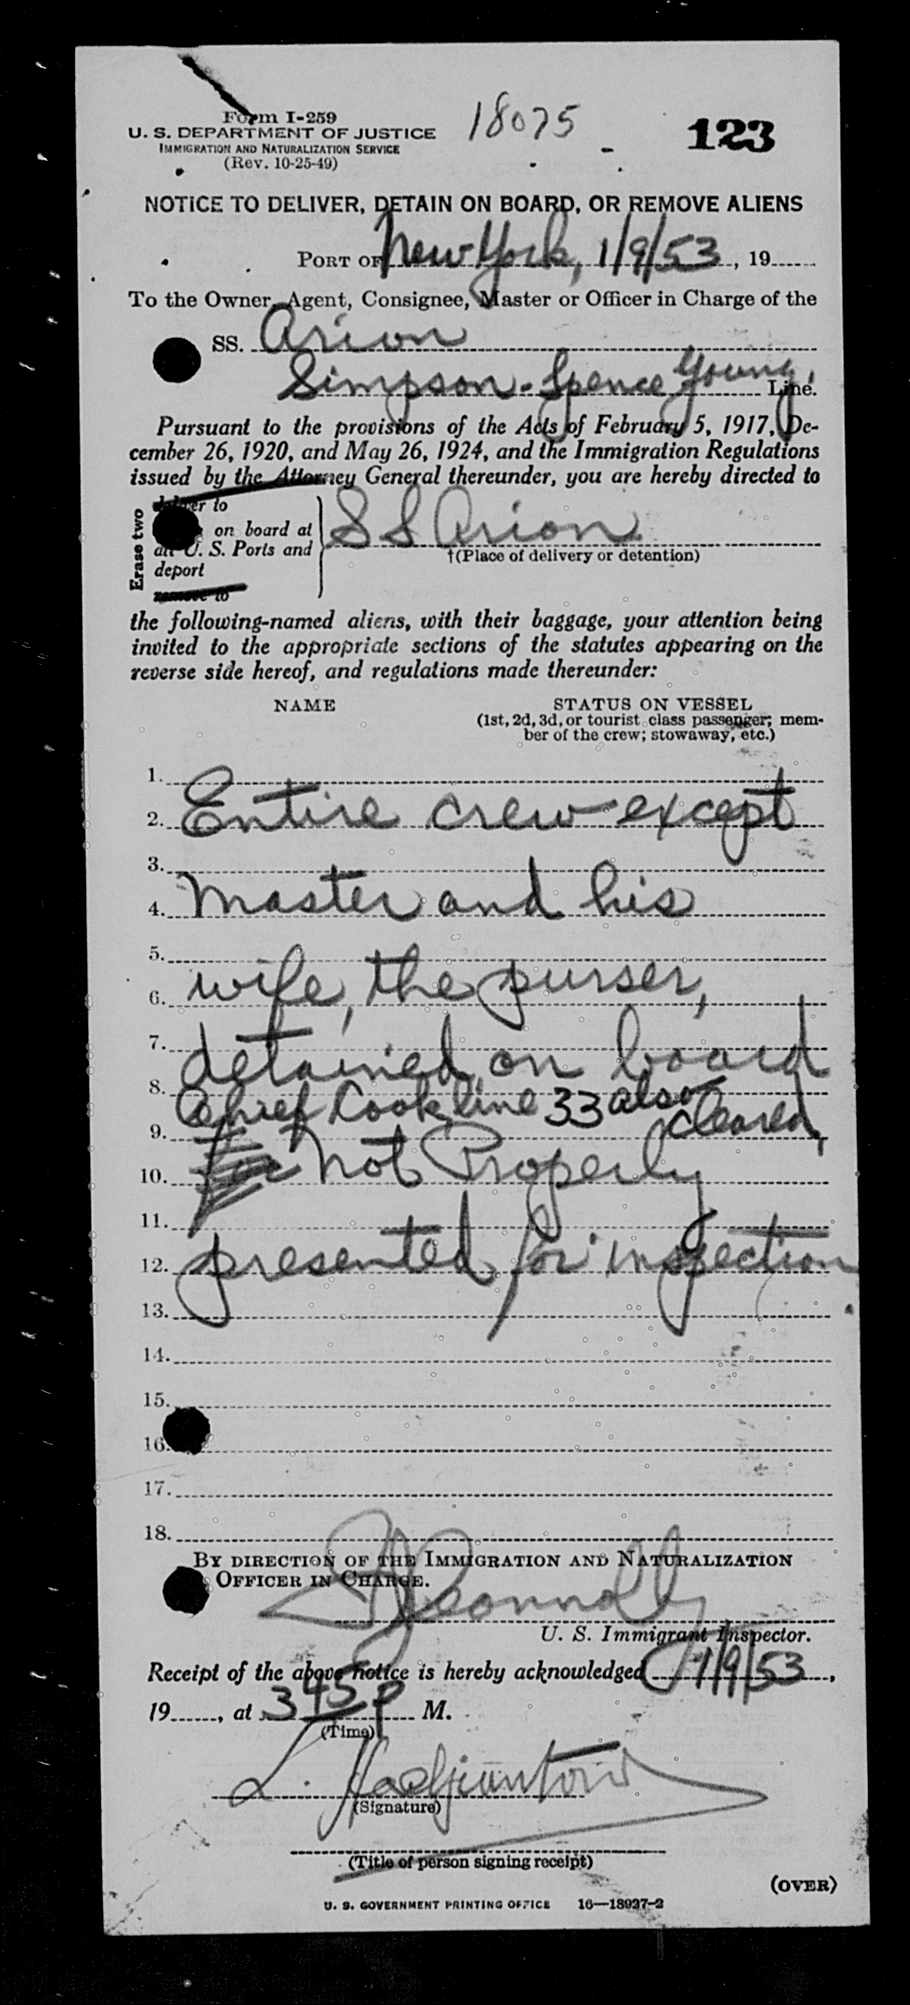 Form I-259
U. S. DEPARTMENT OF JUSTICE
IMMIGRATION AND NATURALIZATION SERVICE
(Rev. 10-25-49)
18075
123
NOTICE TO DELIVER, DETAIN ON BOARD, OR REMOVE ALIENS
PORT OF New York, 1/9/53, 19
To the Owner, Agent, Consignee, Master or Officer in Charge of the
SS. Arion
Simpson-Spence Young, Line.
Pursuant to the provisions of the Acts of February 5, 1917, De-
cember 26, 1920, and May 26, 1924, and the Immigration Regulations
issued by the Attorney General thereunder, you are hereby directed to
Erase two
deliver to
on board at
all U. S. Ports and
deport
remove to
SS Arion
†(Place of delivery or detention)
the following-named aliens, with their baggage, your attention being
invited to the appropriate sections of the statutes appearing on the
reverse side hereof, and regulations made thereunder:
NAME
STATUS ON VESSEL
(1st, 2d, 3d, or tourist class passenger; mem-
ber of the crew; stowaway, etc.)
1.
2. Entire crew except
3.
4. Master and his
5.
6. wife, the purser,
7.
detained on board
8.
Chief Cook line 33 also cleared,
9.
10. for not Properly
11.
12. presented for inspection
13.
14.
15.
16.
17.
18.
BY DIRECTION OF THE IMMIGRATION AND NATURALIZATION
OFFICER IN CHARGE.
Connolly
U. S. Immigrant Inspector.
Receipt of the above notice is hereby acknowledged 1/9/53,
19, at 345 p M.
(Time)
L.
(Signature)
(Title of person signing receipt)
(OVER)
U. S. GOVERNMENT PRINTING OFFICE 16—18927-2